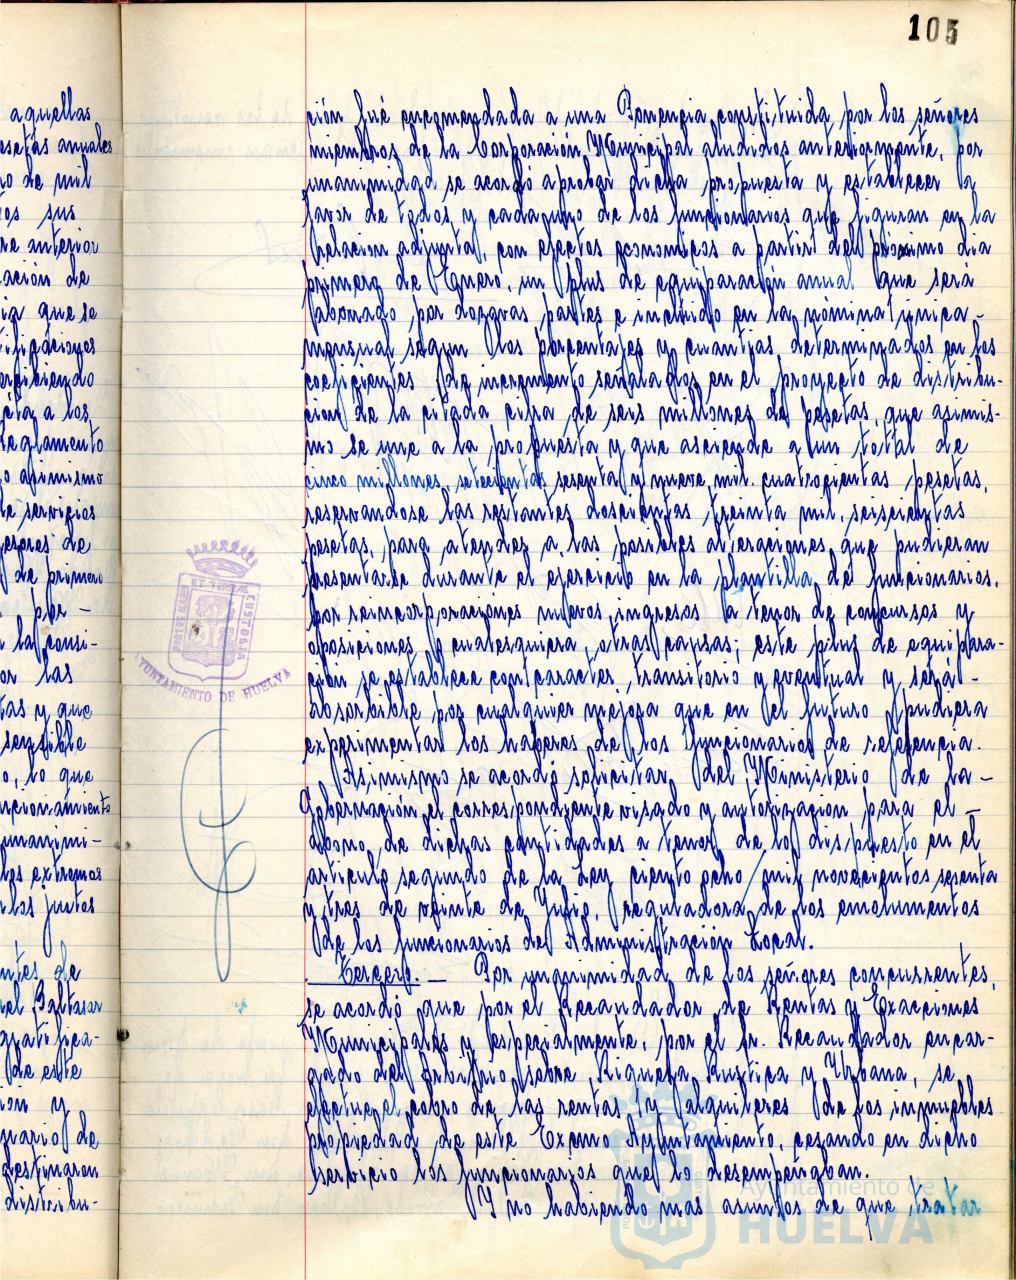 105
aquellas
pesetas anuales
ro de mil
tos sus
re anterior
ración de
ia que se
tificaciones
ercibiendo
cta a los
Reglamento
o asimismo
de servicios
peseres de
de primero
por -
la consi-
or las
tas y que
sensible
o, lo que
uncionamiento
unanimi-
los extremos
los justos
ntes de
el Baltasar
gratifica-
de este
ion y
uario de
destinaron
distribu-
ción fué encomendada a una Ponencia constituida por los señores
miembros de la Corporación Municipal aludidos anteriormente, por
unanimidad se acordó aprobar dicha propuesta y establecer a
favor de todos y cada uno de los funcionarios que figuran en la
relacion adjunta, con efectos economicos a partir del proximo dia
primero de Enero, un plus de equiparación anual que será
abonado por dozavas partes e incluido en la nómina única -
mensual segun los porcentajes y cuantias determinados en los
coeficientes de incremento señalados en el proyecto de distribu-
cion de la citada cifra de seis millones de pesetas, que asimis-
mo se une a la propuesta y que asciende a un total de
cinco millones, setecientas sesenta y nueve mil cuatrocientas pesetas,
reservandose las restantes doscientas treinta mil, seiscientas
pesetas, para atender a las posibles alteraciones que pudieran
presentarse durante el ejercicio en la plantilla de funcionarios,
por reincorporaciones nuevos ingresos a tenor de concursos y
oposiciones o cualesquiera otras causas; este plus de equipara-
ción se establece con caracter transitorio y eventual y será -
absorbible por cualquier mejora que en el futuro pudiera
experimentar los haberes de los funcionarios de referencia.
Asimismo se acordó solicitar del Ministerio de la -
Gobernación el correspondiente visado y autorizacion para el -
abono de dichas cantidades a tenor de lo dispuesto en el
articulo segundo de la Ley ciento ocho/mil novecientos sesenta
y tres de veinte de Julio, reguladora de los emolumentos
de los funcionarios de Administración Local.
Tercero. - Por unanimidad de los señores concurrentes,
se acordó que por el Recaudador de Rentas y Exacciones
Municipales y especialmente por el Sr. Recaudador encar-
gado del Arbitrio sobre Riqueza Rustica y Urbana, se
efectue el cobro de las rentas y alquileres de los inmuebles
propiedad de este Excmo Ayuntamiento, cesando en dicho
servicio los funcionarios que lo desempeñaban.
Y no habiendo mas asuntos de que tratar
AYUNTAMIENTO DE HUELVA
PORTUS MARIS ET TERRAE CUSTODIA
Ayuntamiento de
HUELVA